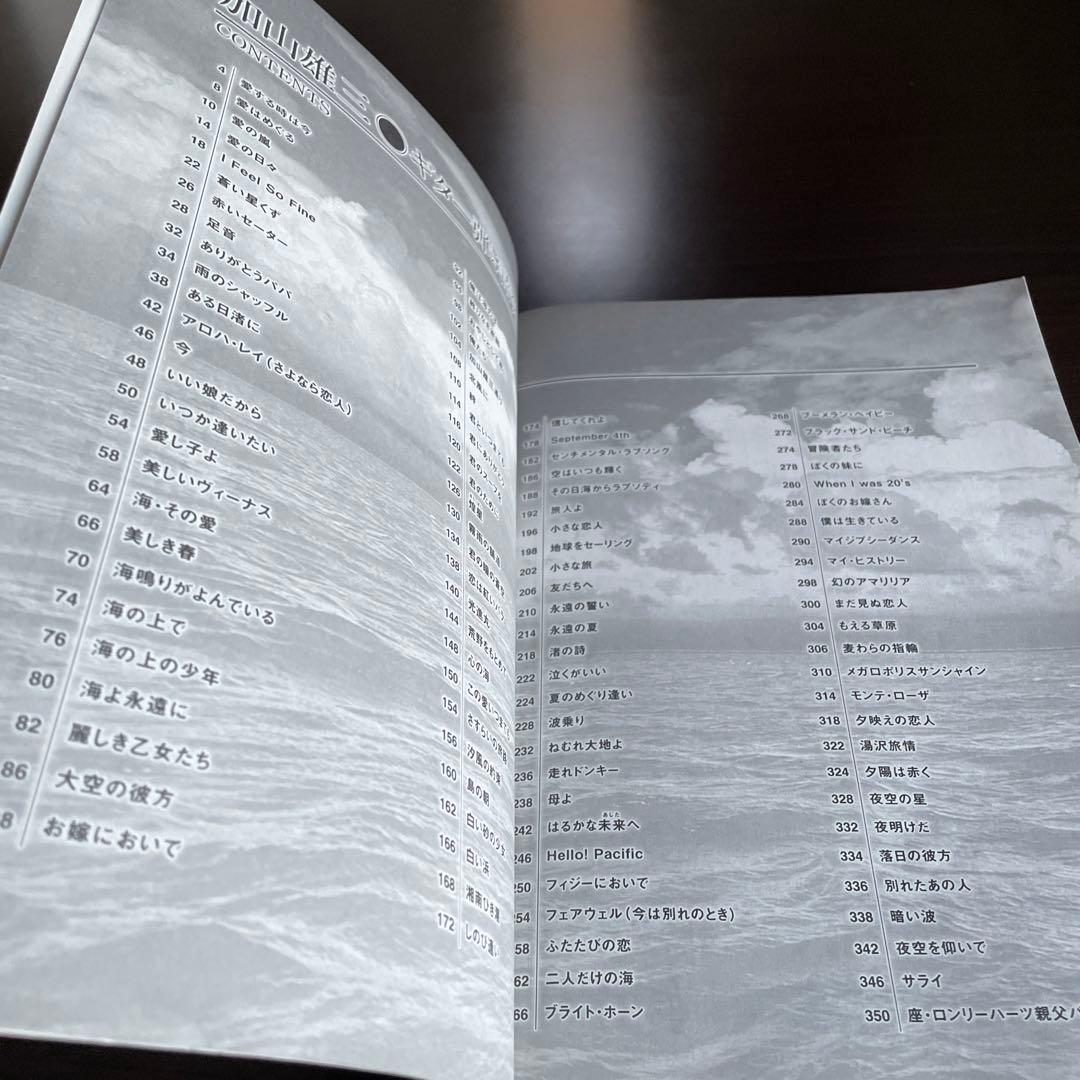 加山雄三●ギター弾き
CONTENTS
4 愛する時は今
8 愛はめぐる
10 愛の嵐
14 愛の日々
18 I Feel So Fine
22 蒼い星くず
26 赤いセーター
28 足音
32 ありがとうパパ
34 雨のシャッフル
38 ある日渚に
42 アロハ・レイ（さよなら恋人）
46 今
48 いい娘だから
50 いつか逢いたい
54 愛し子よ
58 美しいヴィーナス
64 海・その愛
66 美しき春
70 海鳴りがよんでいる
74 海の上で
76 海の上の少年
80 海よ永遠に
82 麗しき乙女たち
86 大空の彼方
8 お嫁においで
102
104
108 北風に
110
114 君といつまでも
116 君にありがとう
120 君のスープを
122 君のために
126 煌星
130 霧雨の舗道
134 君の瞳の青空
138 恋は紅いバラ
140 光進丸
144 荒野をもとめて
148 心の海
150 この愛いつまでも
154 さすらいの旅路
156 汐風の約束
160 島の朝
162 白い砂の少女
166 白い浜
168 湘南ひき潮
172 しのび逢い
174 信じてくれよ
178 September 4th
182 センチメンタル・ラブソング
186 空はいつも輝く
188 その日海からラプソディ
192 旅人よ
196 小さな恋人
198 地球をセーリング
202 小さな旅
206 友だちへ
210 永遠の誓い
214 永遠の夏
218 渚の詩
222 泣くがいい
224 夏のめぐり逢い
228 波乗り
232 ねむれ大地よ
236 走れドンキー
238 母よ
242 はるかな未来へ
あした
246 Hello! Pacific
250 フィジーにおいで
254 フェアウェル（今は別れのとき）
58 ふたたびの恋
62 二人だけの海
66 ブライト・ホーン
268 ブーメラン・ベイビー
272 ブラック・サンド・ビーチ
274 冒険者たち
278 ぼくの妹に
280 When I was 20's
284 ぼくのお嫁さん
288 僕は生きている
290 マイジプシーダンス
294 マイ・ヒストリー
298 幻のアマリリア
300 まだ見ぬ恋人
304 もえる草原
306 麦わらの指輪
310 メガロポリスサンシャイン
314 モンテ・ローザ
318 夕映えの恋人
322 湯沢旅情
324 夕陽は赤く
328 夜空の星
332 夜明けだ
334 落日の彼方
336 別れたあの人
338 暗い波
342 夜空を仰いで
346 サライ
350 座・ロンリーハーツ親父バ